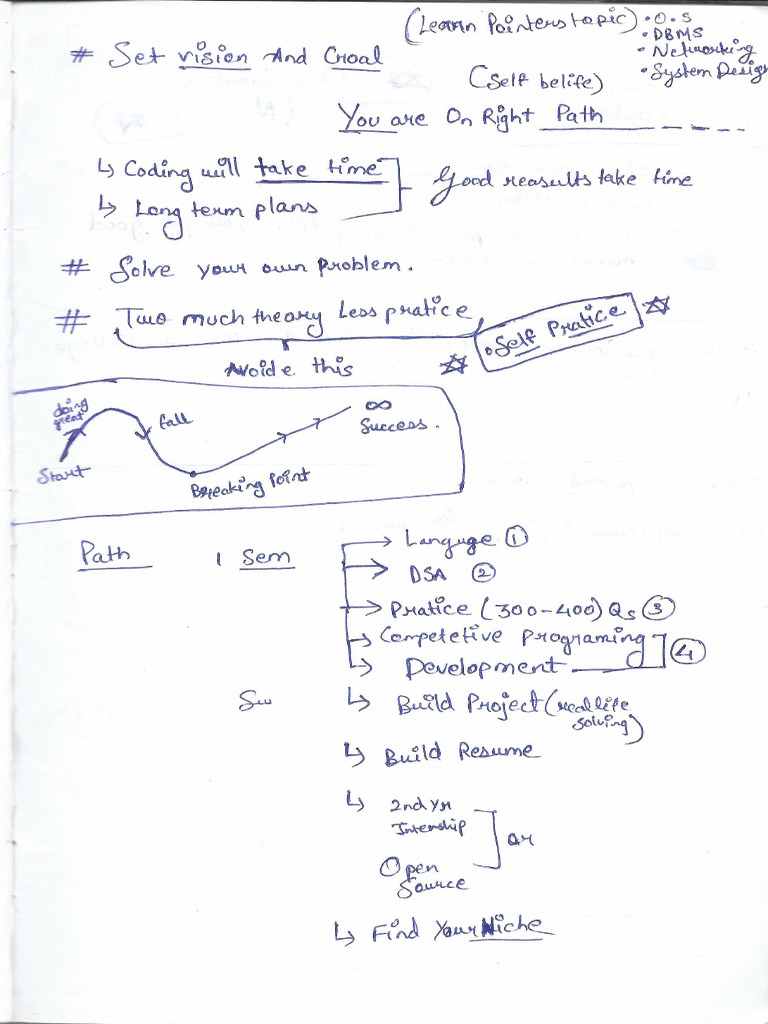 (Learn Pointers topic)
• O.S
• DBMS
• Networking
• System Design
# Set vision And Goal
(Self belife)
You are On Right Path
↳ Coding will take time
↳ Long term plans
Good reasults take time
# Solve your own problem.
# Two much theory Less pratice
• Self Pratice
Avoide this
doing great
fall
∞
Success.
Start
Breaking Point
Path 1 Sem
→ Languge ①
→ DSA ②
→ Pratice (300-400) Qs ③
→ Competetive programing
→ Development
④
↳ Build Project (real life
solving)
↳ Build Resume
↳ 2nd yr
Intenship
Or
Open
Source
↳ Find Your Niche